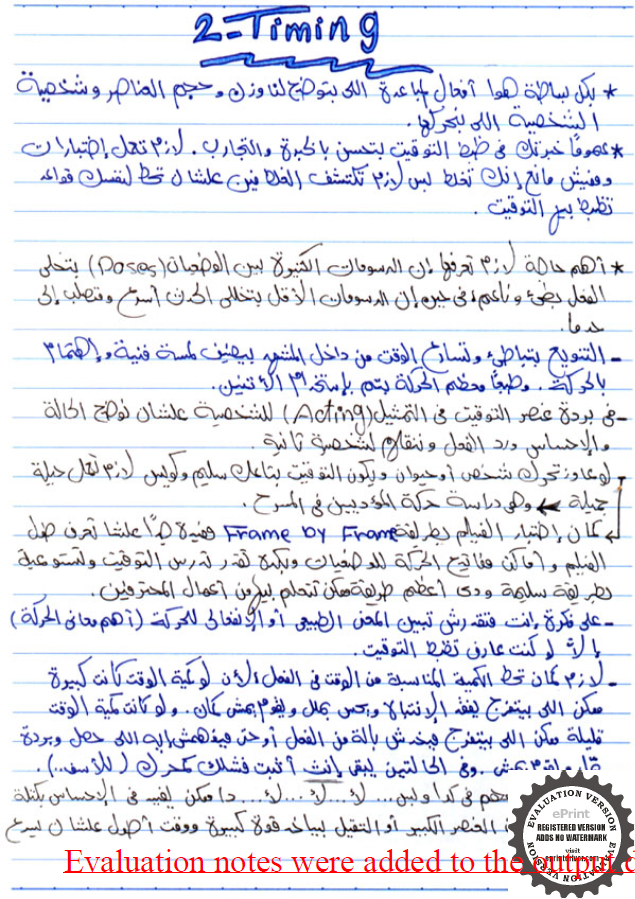 2-Timing
* بكل بساطة هوا أفعال جامدة اللى بتوضح لنا وزن و حجم العناصر و شخصية
الشخصية اللى بنحركها.
* عموماً خبرتك فى ضبط التوقيت بتتحسن بالخبرة والتجارب. لازم تعمل إختبارات
ومفيش مانع إنك تغلط بس لازم تكتشف الغلط فين علشان تحط لنفسك قواعد
تظبط بيها التوقيت.
* أهم حاجة لازم تعرفها إن الرسومات الكتيرة بين الوضعيات (Poses) بتخلى
الفعل بطئ و ناعم، فى حين إن الرسومات الأقل بتخلى الحدث أسرع و متصلب إلى
حد ما.
- التنويع بتباطئ وتسارع الوقت من داخل المشهد بيضيف لمسة فنية و إهتمام
بالحركة. وطبعاً معظم الحركة يتم بإستخدام الأتنين.
- فى بردة عنصر التوقيت فى التمثيل (Acting) للشخصية علشان نوضح الحالة
والإحساس ورد الفعل و ننقلهم لشخصية تانية.
- لو عاوز تحرك شخص أو حيوان ويكون التوقيت بتاعك سليم وكويس لازم تعمل حيلة
جميلة ← وهى دراسة حركة المؤديين فى المسرح.
كمان إختبار الفيلم بطريقة Frame by Frame مفيدة جداً علشان تعرف طول
الفيلم و أماكن مفاتيح الحركة للوضعيات وبكدة تقدر تدرس التوقيت وتستوعبه
بطريقة سليمة ودى أعظم طريقة ممكن تتعلم بيها من أعمال المحترفين.
- على فكرة إنت متقدرش تبين المعنى الطبيعى أو الإنفعالى للحركة (أهم معانى الحركة)
إلا لو كنت عارف تظبط التوقيت.
- لازم كمان تحط الكمية المناسبة من الوقت فى الفعل، لأن لو كمية الوقت كانت كبيرة
ممكن اللى بيتفرج يفقد الإنتباة و يحس بملل و يقوم يمشى كمان. و لو كانت كمية الوقت
قليلة ممكن اللى بيتفرج ميخدش بالة من الفعل أو حتى ميفهمش إيه اللى حصل وبردة
يقوم يمشى. وفى الحالتين يبقى إنت أثبت فشلك كمحرك (للأسف..).
فى كدا و بس... لأ لأ... لأ... دا ممكن يفيد فى الإحساس بكتلة
العنصر الكبير أو التقيل بياخد قوة كبيرة و وقت أطول علشان يسرع
Evaluation notes were added to the output d
EVALUATION VERSION
ePrint
REGISTERED VERSION
ADDS NO WATERMARK
visit
EVALUATION VERSION